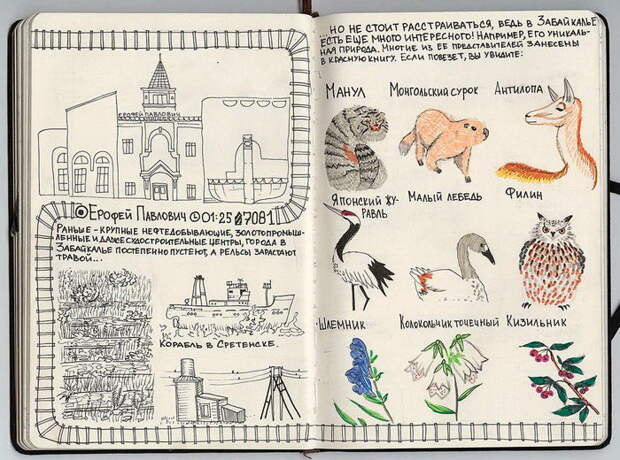 ЕРОФЕЙ ПАВЛОВИЧ
ЕРОФЕЙ ПАВЛОВИЧ 01:25 7081
РАНЬШЕ - КРУПНЫЕ НЕФТЕДОБЫВАЮЩИЕ, ЗОЛОТОПРОМЫШ-
ЛЕННЫЕ И ДАЖЕ СУДОСТРОИТЕЛЬНЫЕ ЦЕНТРЫ, ГОРОДА В
ЗАБАЙКАЛЬЕ ПОСТЕПЕННО ПУСТЕЮТ, А РЕЛЬСЫ ЗАРАСТАЮТ
ТРАВОЙ...
КОРАБЛЬ В СРЕТЕНСКЕ.
...НО НЕ СТОИТ РАССТРАИВАТЬСЯ, ВЕДЬ В ЗАБАЙКАЛЬЕ
ЕСТЬ ЕЩЕ МНОГО ИНТЕРЕСНОГО! НАПРИМЕР, ЕГО УНИКАЛЬ-
НАЯ ПРИРОДА. МНОГИЕ ИЗ ЕЕ ПРЕДСТАВИТЕЛЕЙ ЗАНЕСЕНЫ
В КРАСНУЮ КНИГУ. ЕСЛИ ПОВЕЗЕТ, ВЫ УВИДИТЕ:
МАНУЛ
МОНГОЛЬСКИЙ СУРОК
АНТИЛОПА
ЯПОНСКИЙ ЖУ-
РАВЛЬ
МАЛЫЙ ЛЕБЕДЬ
ФИЛИН
ШЛЕМНИК
КОЛОКОЛЬЧИК ТОЧЕЧНЫЙ
КИЗИЛЬНИК